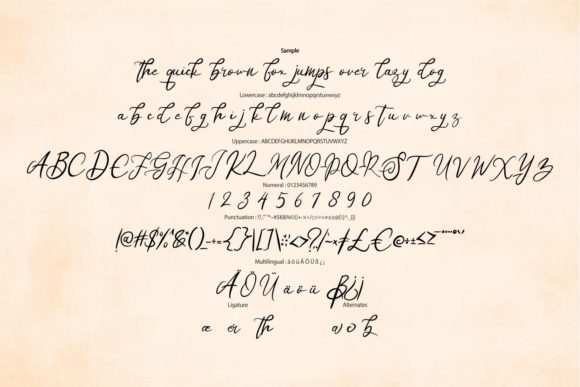 Sample
the quick brown fox jumps over lazy dog
Lowercase : abcdefghijklmnopqrstuvwxyz
a b c d e f g h i j k l m n o p q r s t u v w x y z
Uppercase : ABCDEFGHIJKLMNOPQRSTUVWXYZ
A B C D E F G H I J K L M N O P Q R S T U V W X Y Z
Numeral : 0123456789
1 2 3 4 5 6 7 8 9 0
Punctuation :
Multilingual : ä ö ü Ä Ö Ü ß ¿ ¡
Ä Ö Ü ä ö ü ß ¿ ¡
Ligature Alternates
th